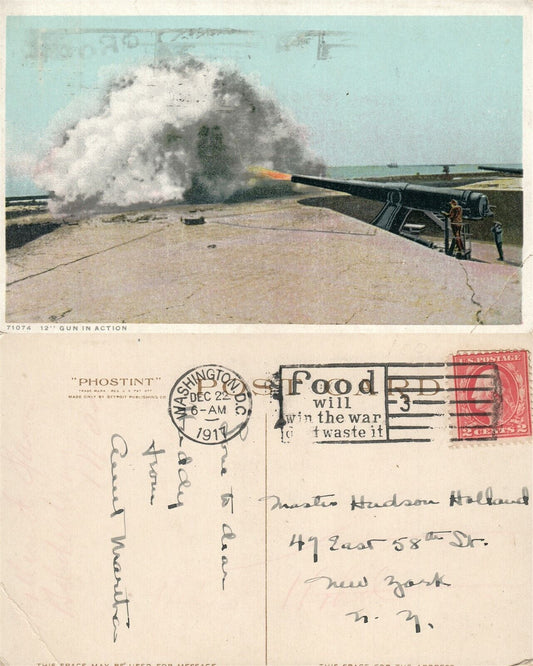 71074 12" GUN IN ACTION
"PHOSTINT"
TRADE MARK REG. U.S. PAT. OFF.
MADE ONLY BY DETROIT PUBLISHING CO.
POST CARD
WASHINGTON, D.C.
DEC 22
6-AM
1917
Food
will
win the war
don't waste it
3
U.S. POSTAGE
2 CENTS 2
love to dear
from
Master Hudson Holland
49 East 58th St.
New York
N. Y.
THIS SPACE MAY BE USED FOR MESSAGE
THIS SPACE FOR ADDRESS ONLY